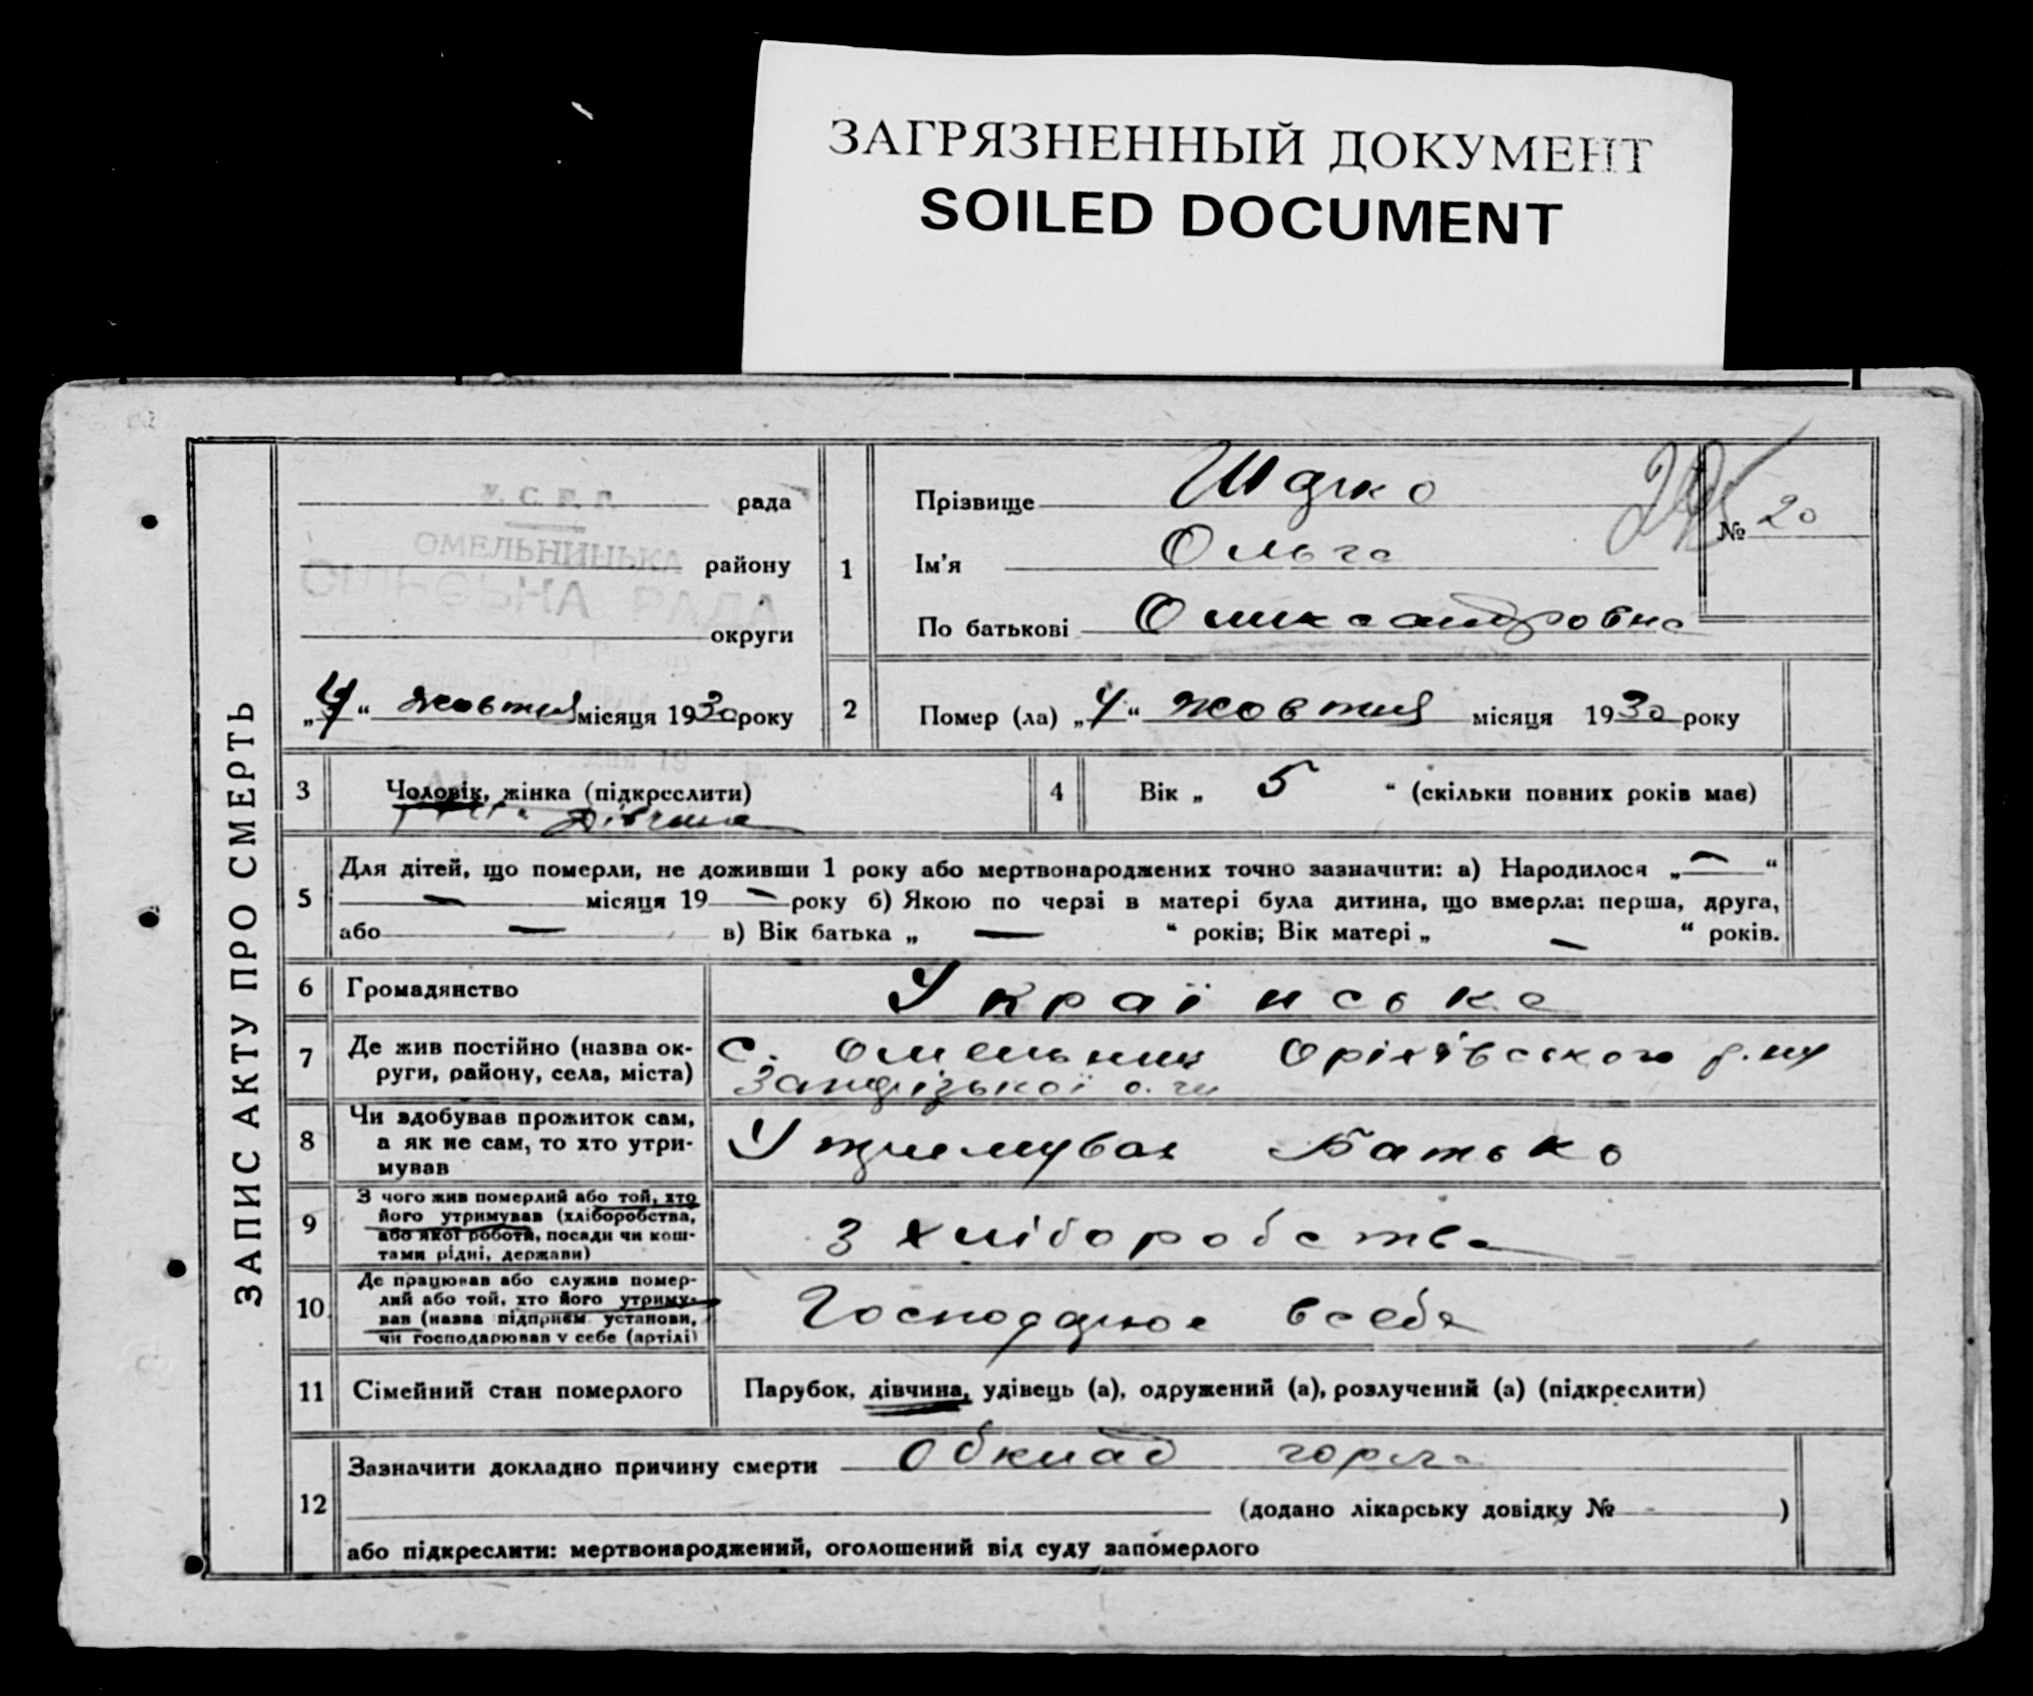 ЗАГРЯЗНЕННЫЙ ДОКУМЕНТ
SOILED DOCUMENT
ЗАПИС АКТУ ПРО СМЕРТЬ
У. С. Р. Р.
рада
ОМЕЛЬНИЦЬКА
району
РАДА
округи
„4“ жовтня місяця 1930 року
1
Прізвище
№ 20
Ім'я Ольга
По батькові Олександровна
2 Помер (ла) „4“ жовтня місяця 1930 року
3 Чоловік, жінка (підкреслити)
дівчина
4 Вік „ 5 “ (скільки повних років має)
5 Для дітей, що померли, не доживши 1 року або мертвонароджених точно зазначити: а) Народилося „ — “
— місяця 19 — року б) Якою по черзі в матері була дитина, що вмерла: перша, друга,
або — в) Вік батька „ — “ років; Вік матері „ — “ років.
6 Громадянство Українська
7 Де жив постійно (назва ок-
руги, району, села, міста)
с. Омельник Оріхівського р-ну
Запорізької о-ги
8 Чи здобував прожиток сам,
а як не сам, то хто утри-
мував
Утримував Батько
9 З чого жив померлий або той, хто
його утримував (хліборобства,
або якої роботи, посади чи кош-
тами рідні, держави)
З хліборобства
10 Де працював або служив помер-
лий або той, хто його утриму-
вав (назва підприєм. установи,
чи господарював у себе (артілі)
Господарює в себе
11 Сімейний стан померлого Парубок, дівчина, удівець (а), одружений (а), розлучений (а) (підкреслити)
12 Зазначити докладно причину смерти Обклад горла
(додано лікарську довідку № - )
або підкреслити: мертвонароджений, оголошений від суду запомерлого